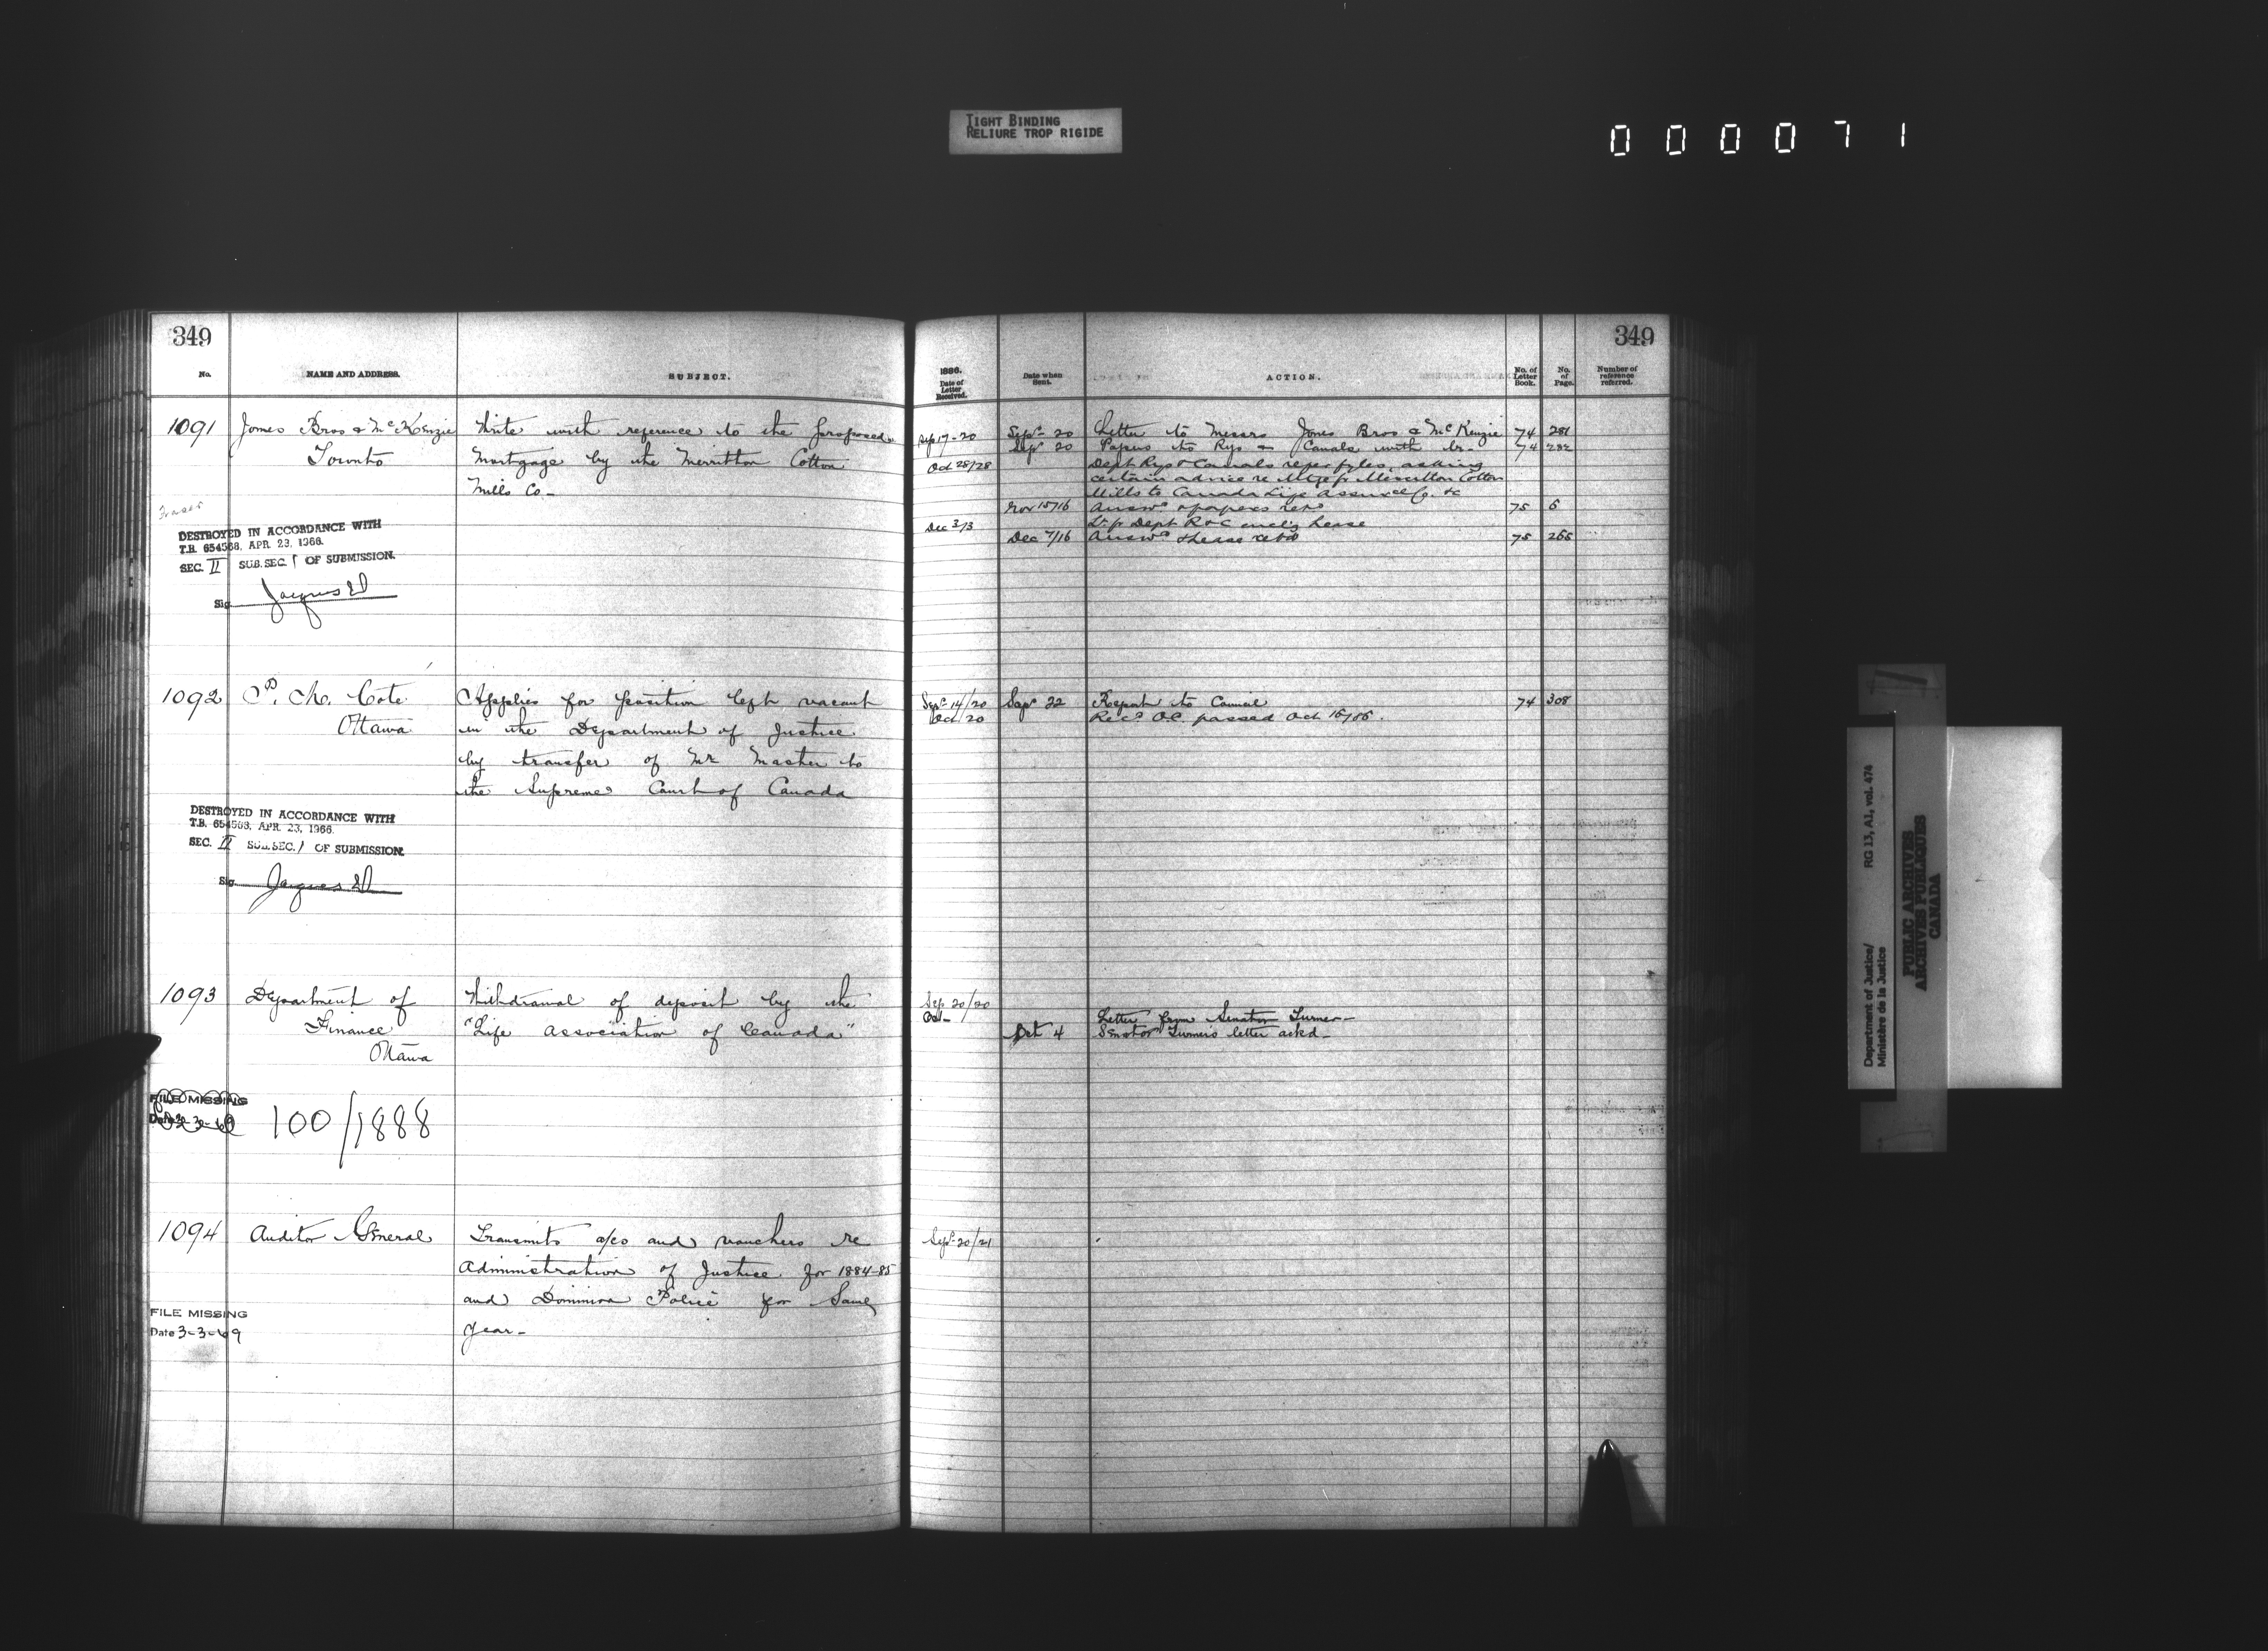 TIGHT BINDING
RELIURE TROP RIGIDE
000071
349
No.
NAME AND ADDRESS.
SUBJECT.
1091
Jones Bros & McKenzie
Toronto
Write with reference to the proposed
Mortgage by the Merritton Cotton
Mills Co-
Fraser
DESTROYED IN ACCORDANCE WITH
T.B. 654568, APR. 23, 1966.
SEC. II SUB. SEC. 1 OF SUBMISSION.
Sig.
1092
Cote
Ottawa
Applies for position left vacant
in the Department of Justice
by transfer of Mr Master to
the Supreme Court of Canada
DESTROYED IN ACCORDANCE WITH
T.B. 654568, APR. 23, 1966.
SEC. II SUB. SEC. 1 OF SUBMISSION.
Sig.
1093
Department of
Finance
Ottawa
Withdrawal of deposit by the
"Life Association of Canada"
FILE MISSING
Date 3-3-69
100/1888
1094
Auditor General
Transmits a/cs and vouchers re
Administration of Justice for 1884-85
and Dominion Police for Same
Year-
FILE MISSING
Date 3-3-69
349
1886.
Date of
Letter
Received.
Date when
Sent.
ACTION.
No. of
Letter
Book.
No.
of
Page.
Number of
reference
referred.
Sep 17-20 Sept 20 Letter to Messrs Jones Bros & McKenzie 74 281
Sep 20 Papers to Rys & Canals with lr- 74 282
Oct 28/28 Dept Rys & Canals papers, asking
certain advice re Mtge fr Merritton Cotton
Mills to Canada Life Assurce Co. &c
Nov 15/16 Answd & papers retd 75 6
Dec 3/3 Lr fr Dept R&C enclg Lease
Dec 7/16 Answd & Lease retd 75 265
Sept 14/20 Sept 22 Report to Council 74 308
Oct /20 Recd O.C. passed Oct 16/86.
Sep 20/20
Oct- Letter from Senator Turner-
Oct 4 Senator Turner's letter ackd-
Sept 20/21
Department of Justice/
Ministère de la Justice
RG 13, A1, vol. 474
PUBLIC ARCHIVES
ARCHIVES PUBLIQUES
CANADA